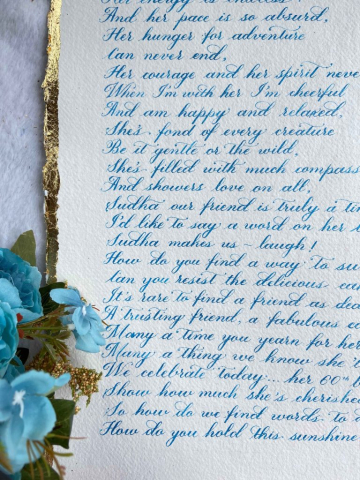 Her energy is endless!
And her pace is so absurd,
Her hunger for adventure
Can never end,
Her courage and her spirit never
When I'm with her I'm cheerful
And am happy and relaxed,
She's fond of every creature
Be it gentle or the wild,
She's filled with much compass
And showers love on all,
Sudha our friend is truly a
I'd like to say a word on her
Sudha makes us - laugh!
How do you find a way to
Can you resist the delicious
It's rare to find a friend as
A trusting friend, a fabulous
Many a time you yearn for her
Many a thing we know she
We celebrate today... her 60th
Show how much she's cherished
So how do we find words to
How do you hold this sunshine